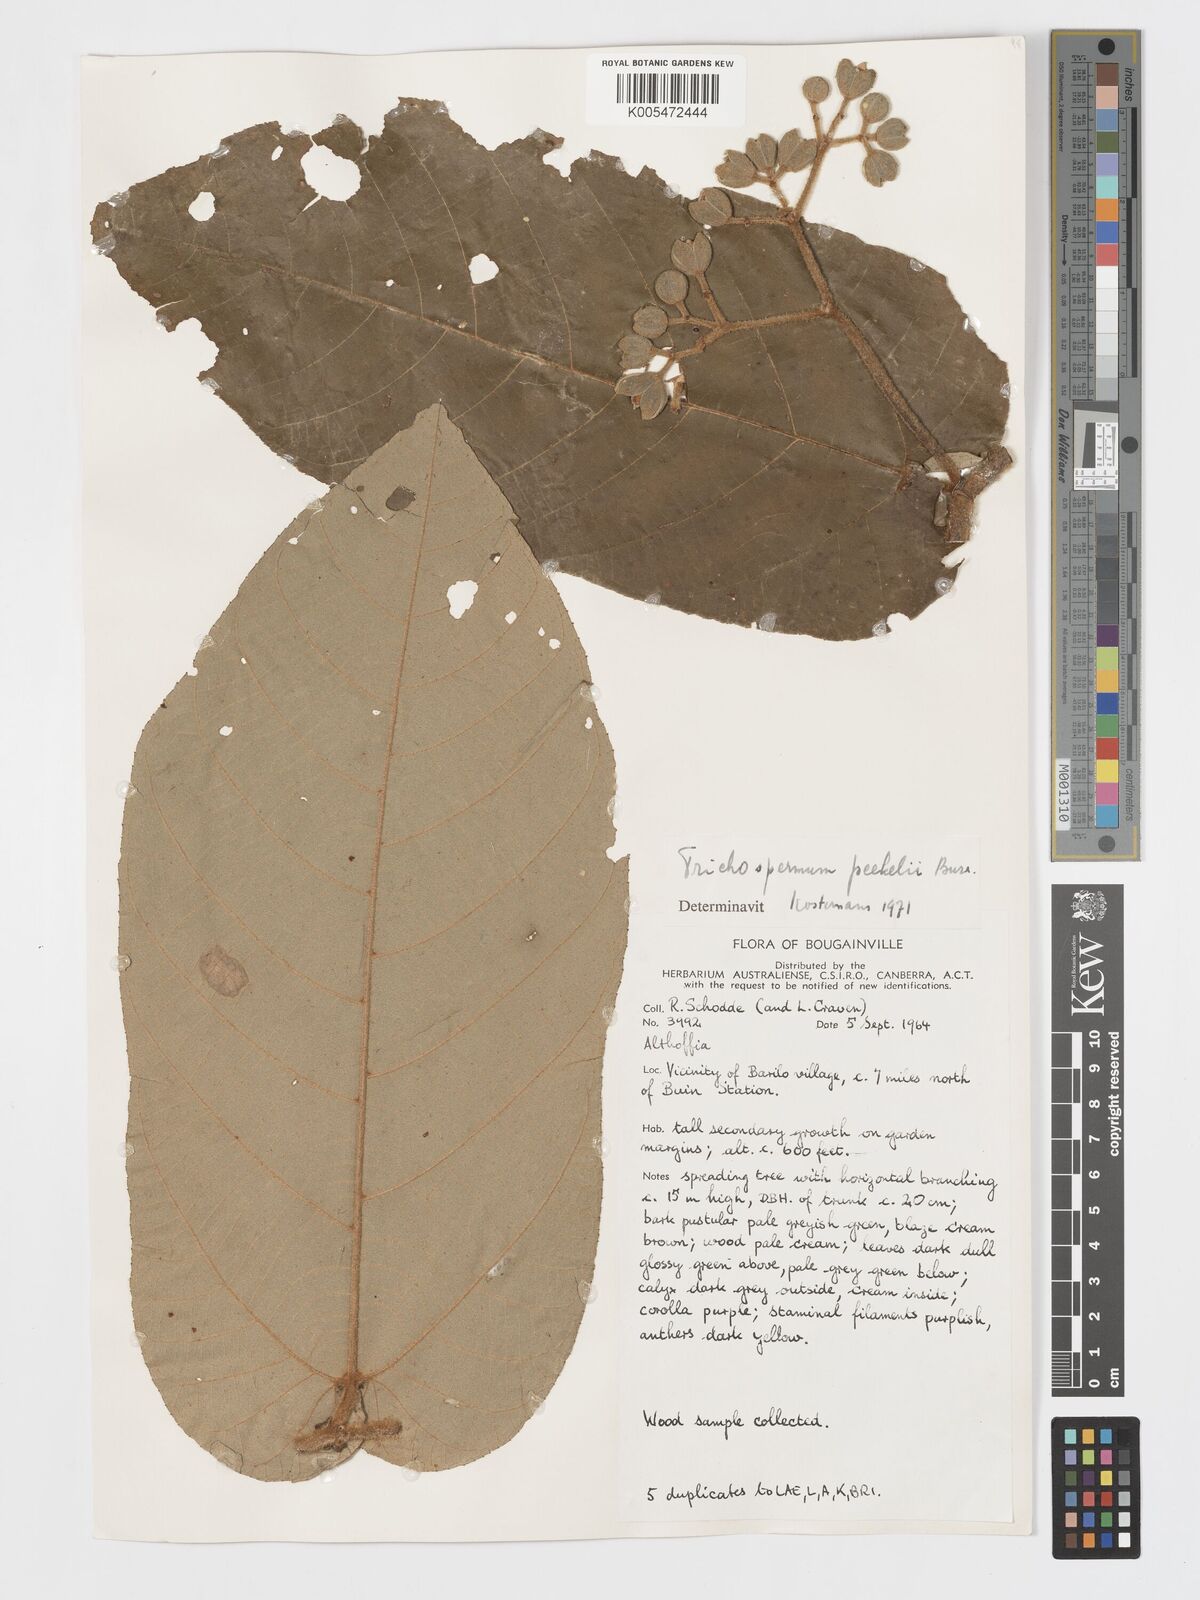 ROYAL BOTANIC GARDENS KEW
K005472444
Trichospermum peekelii Burr.
Determinavit Kostermans 1971
FLORA OF BOUGAINVILLE
Distributed by the
HERBARIUM AUSTRALIENSE, C.S.I.R.O., CANBERRA, A.C.T.
with the request to be notified of new identifications.
Coll. R. Schodde (and L. Craven)
No. 3992 Date 5 Sept. 1964
Althoffia
Loc. Vicinity of Barilo village, c. 7 miles north
of Buin Station.
Hab. tall secondary growth on garden
margins; alt. c. 600 feet.
Notes spreading tree with horizontal branching
c. 15 m high, D.B.H. of trunk c. 20 cm;
bark pustular pale greyish green, blaze cream
brown; wood pale cream; leaves dark dull
glossy green above, pale grey green below;
calyx dark grey outside, cream inside;
corolla purple; staminal filaments purplish,
anthers dark yellow.
Wood sample collected.
5 duplicates to LAE, L, A, K, BRI.
inches
Density
Don Williams
centimeters
M001310
Kew
Royal Botanic Gardens
copyright reserved
0 1 2 3 4 5 6 7 8 9 10
cm